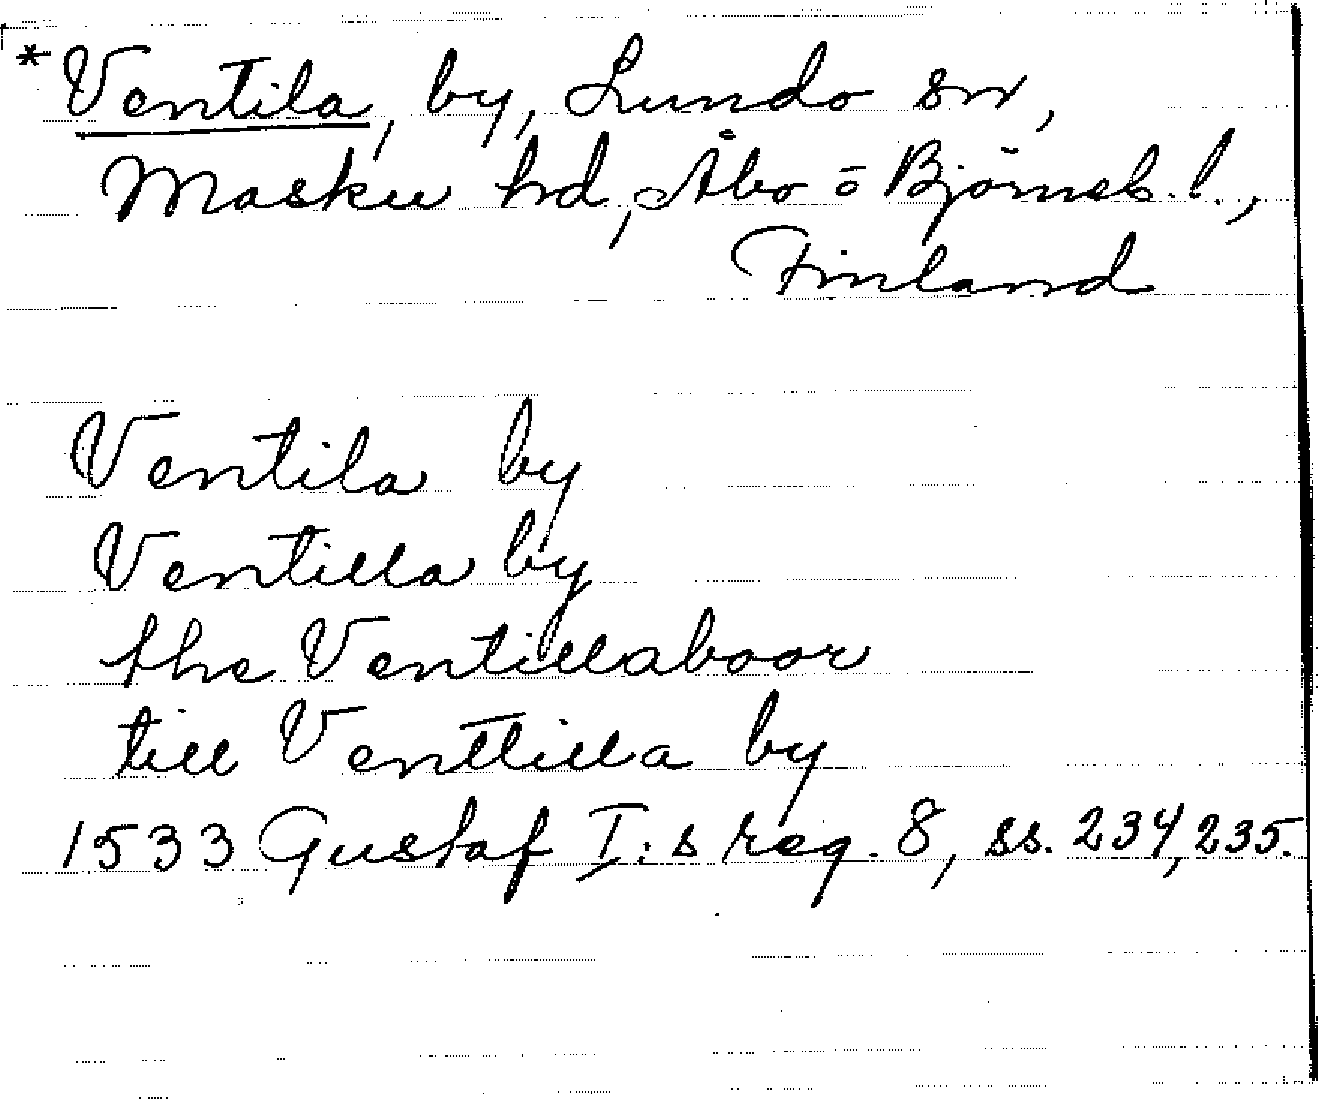 *Ventila, by, Lundo sn,
Masku hd, Åbo o Björneb. l.,
Finland
Ventila by
Ventilla by
the Ventillaboor
till Venttilla by
1533 Gustaf I:s reg. 8, ss. 234, 235.